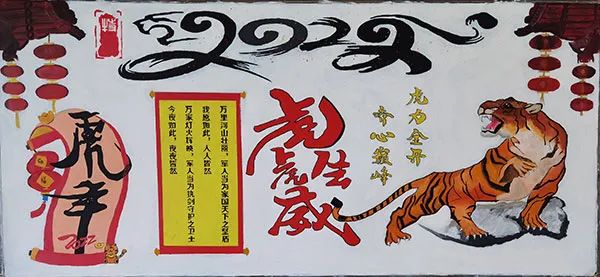 2022
虎年
2022
万里河山壮阔，军人当为家国天下之坚盾
我愿如此，人人皆然
万家灯火辉映，军人当为执剑守护之卫士
今夜如此，夜夜皆然
虎虎生威
虎力全开
心巅峰